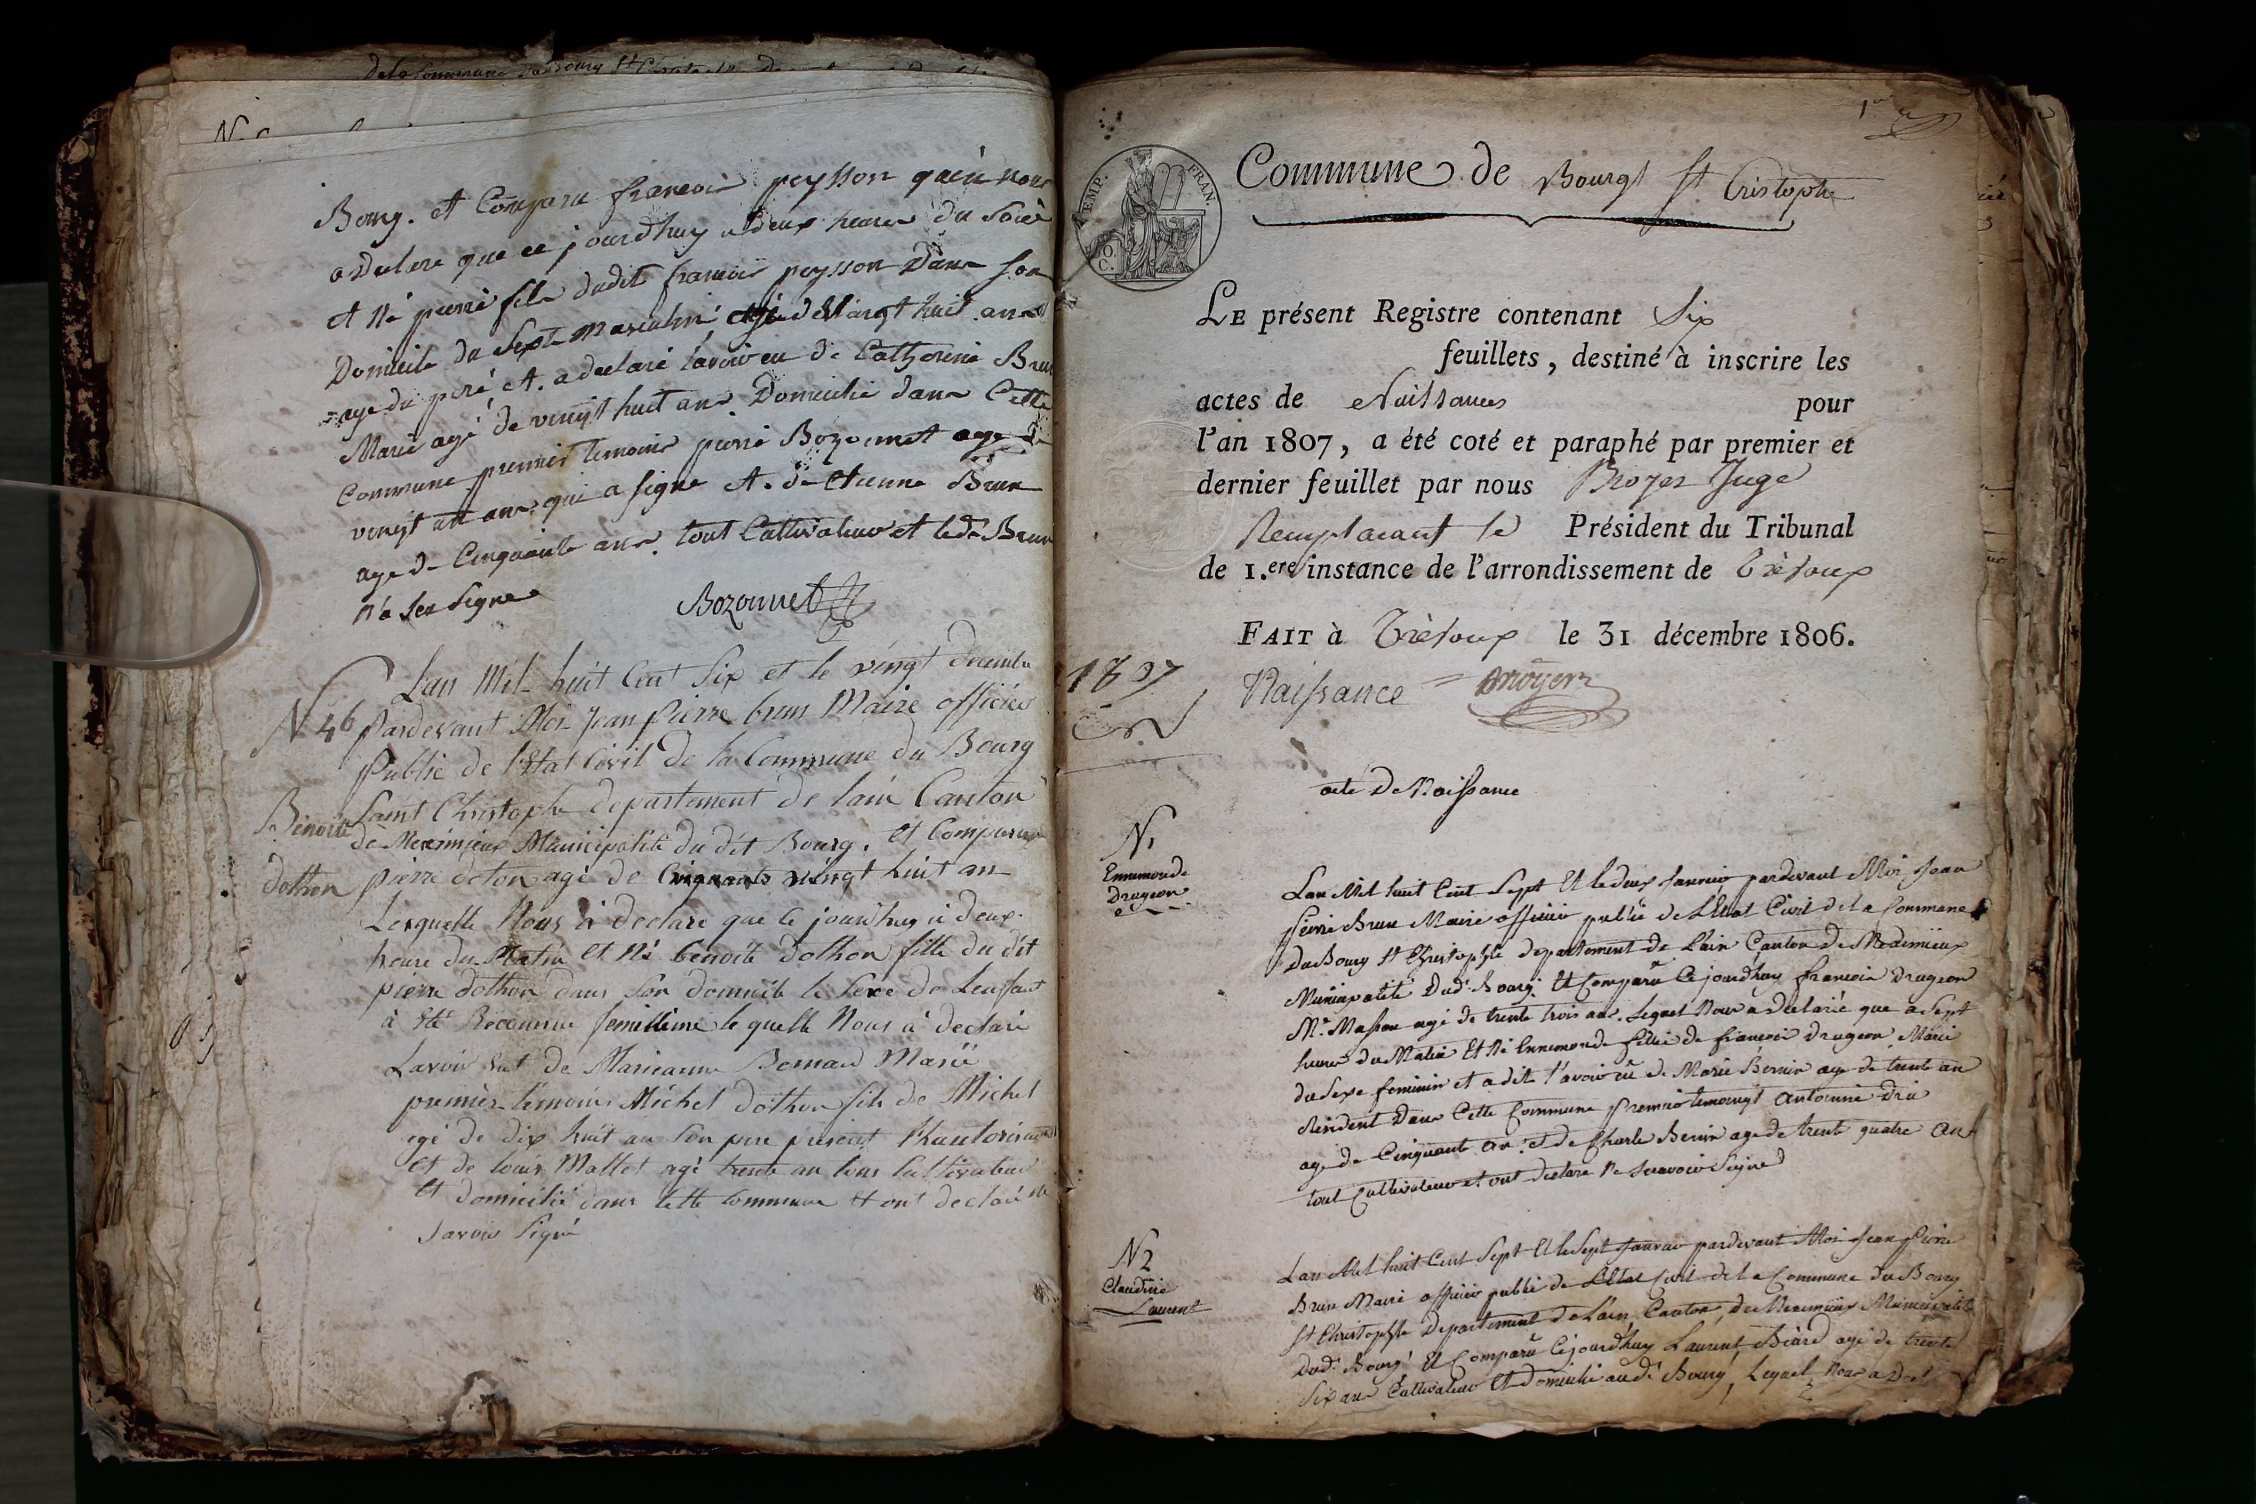 Bourg. et Comparu francois peysson qui a nous
a declare que ce jourdhuy a deux heures du Soire
et né pierre fils dudit francois peysson dans son
Domicile du Sexte masculin agé de Vingt huit ans
age du peré, et. a declaré lavoir eu de Catherine Brun
Marié agé de vingt huit ans Domicilié dans Cette
Commune premier temoins pierre Bozonnet age de
vingt un ans qui a signe et. de Etienne Brun
age de Cinquante ans. tout Cultivateur et ledt Brun
n'a seu signe
Bozonnet
N 46
Lan Mil huit Cent Six et le vingt decembre
Pardevant Moi Jean pierre brun Maire officier
Public de l'Etat Civil de la Commune du Bourg
Benoite
Saint Christophe departement de lain Canton
de Meximieux Municipalité du dit Bourg. et Comparu
dothon
pierre doton agé de vingt huit an
Lesquelle Nous à declaré que ce jourdhuy à deux
heure du Matin et Né benoite dothon fille du dit
pierre dothon dans son domicile le sexe de Lenfant
à été Reconnue femillinne lequelle Nous à declaré
Lavoir eut de Marieanne Bernard Mariée
premier temoins Michel dothon fils de Michel
agé de dix huit an son pere present
et de louis Mallet agé trente an tous Cultivateur
et domicilié dans cette commune et ont declaré ne
savoir signé
1er
EMP. FRAN.
O.
C.
Commune de Bourg St Cristophe
LE présent Registre contenant Six
feuillets, destiné à inscrire les
actes de Naissances pour
l'an 1807, a été coté et paraphé par premier et
dernier feuillet par nous Broyer Juge
Remplacant le Président du Tribunal
de 1.ere instance de l'arrondissement de Trévoux
FAIT à Trévoux le 31 décembre 1806.
1807
Naissance Broyer
acte De Naissance
N 1
Ennemonde
Drugeon
Lan Mil huit Cent Sept Et le deux Janvier pardevant Moi Jean
pierre Brun Maire officier public de L'Etat Civil de la Commune
Du Bourg St Christophe departement de Lain Canton De Meximieux
Municipalité Dudt Bourg. Et Comparu Cejourdhuy francois Drugeon
Me Masson agé de trente trois ans. Lequel Nous a declaré que a Sept
heures du Matin Et Né Ennemonde fillie de francois Drugeon Marié
du Sexe feminin et a dit l'avoir eû de Marie Bernin age de trente an
Resident Dans Cette Commune Premier temoingt Antoinne
age de Cinquante an. et de Charle Bernin age de trente quatre ans
tout Cultivateur et ont declare Ne Scavoir Signe
N 2
Claudine
Laurent
Lan Mil huit Cent Sept Et le Sept Janvier pardevant Moi Jean Pierre
Brun Maire officier public de L'Etat Civil de la Commune du Bourg
St Christophe Departement de Lain Canton de Meximieux Municipalité
Dudt Bourg Et Comparu Cejourdhuy Laurent agé de trente
Six ans Cultivateur Et domicilié audt Bourg, Lequel Nous a